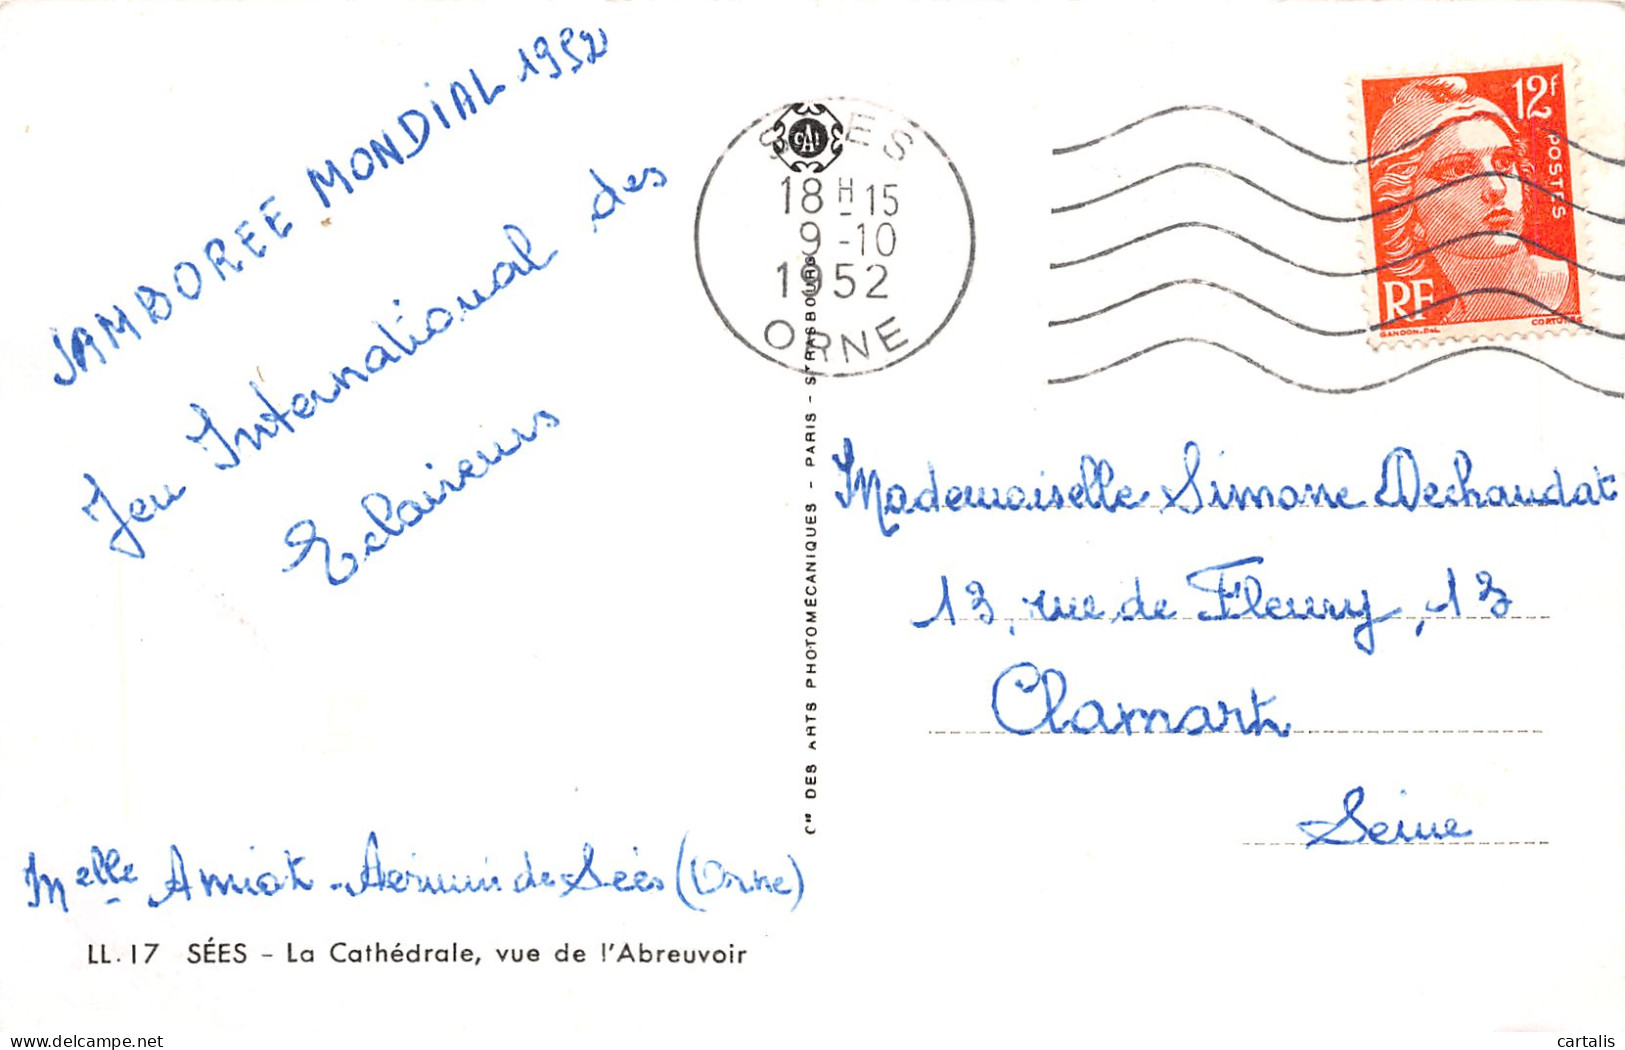 JAMBOREE MONDIAL 1952
Jeu International des
Eclaireurs
Melle Amiot - Aérium de Sées (Orne)
LL. 17 SÉES - La Cathédrale, vue de l'Abreuvoir
Cie DES ARTS PHOTOMÉCANIQUES - PARIS - STRASBOURG
CAP
SÉES
18H-15
9-10
1952
ORNE
12f
POSTES
RF
GANDON.DEL
CORTOT.SC
Mademoiselle Simone Dechaudat
13, rue de Fleury, 13
Clamart
Seine
cartalis